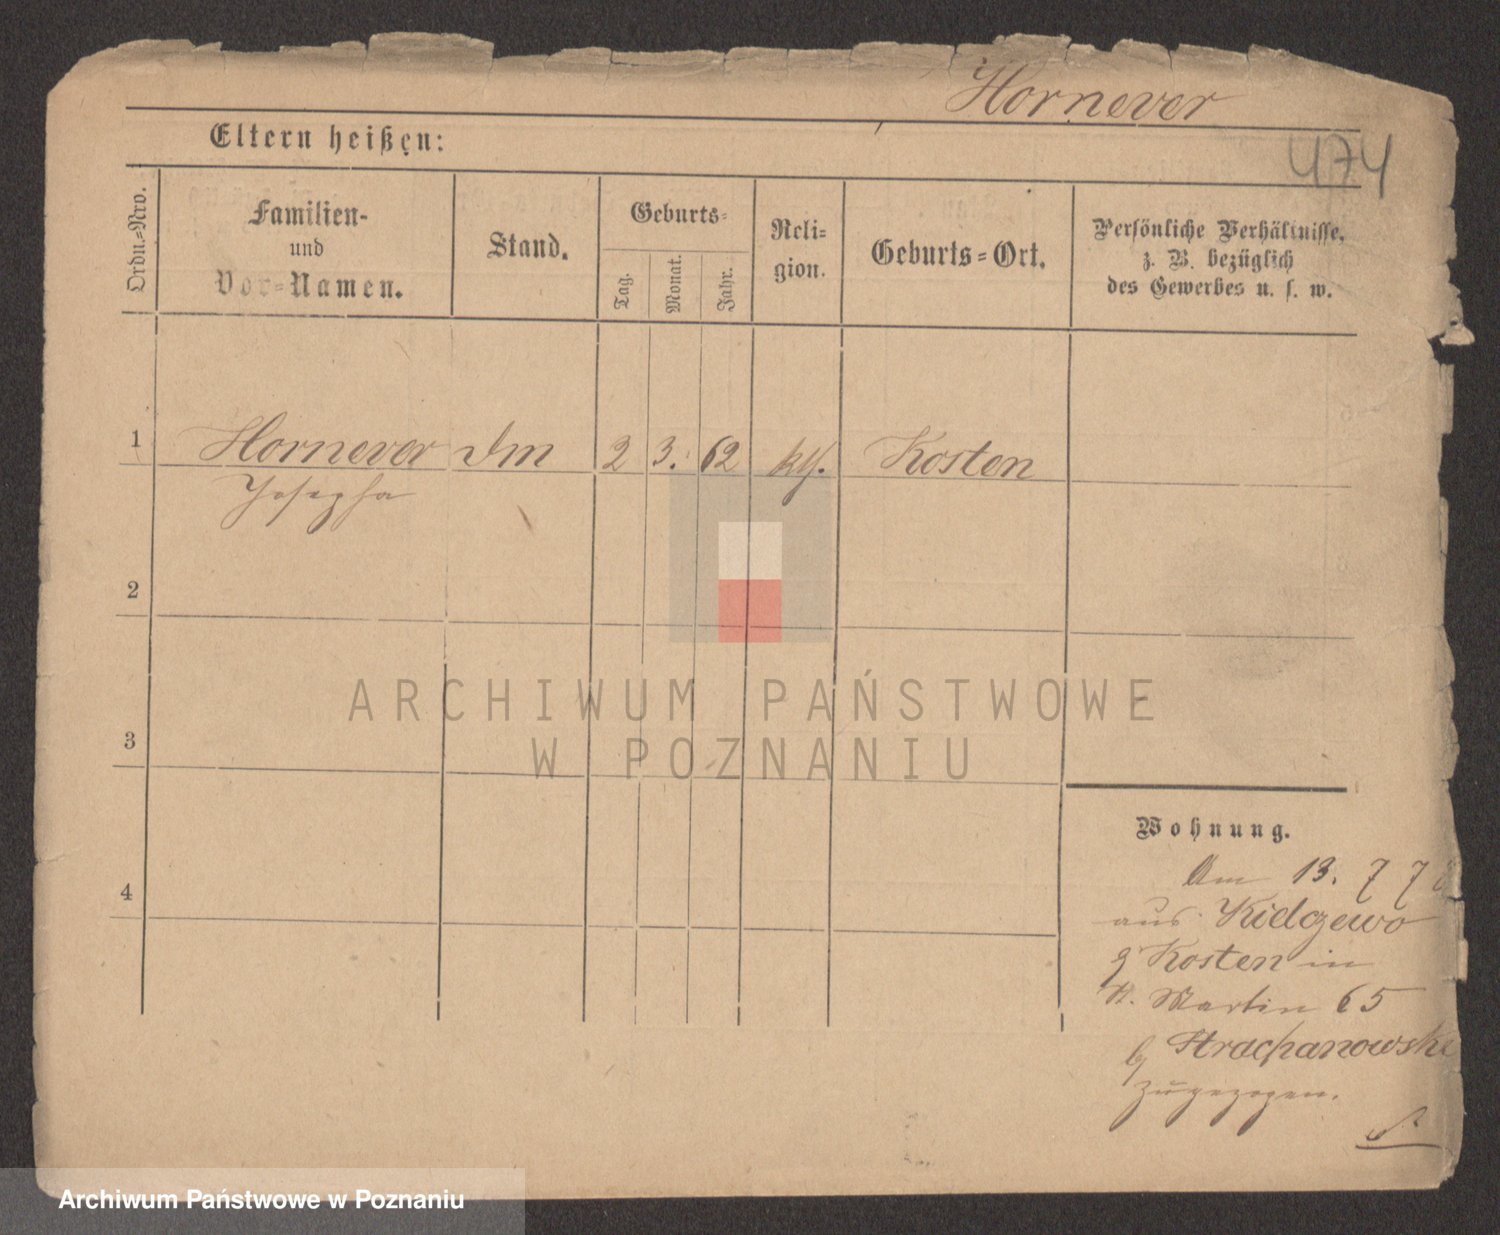 Hornever
474
Eltern heißen:
Ordn.-Nro.
Familien-
und
Vor-Namen.
Stand.
Geburts-
Tag.
Monat.
Jahr.
Reli-
gion.
Geburts-Ort.
Persönliche Verhältnisse,
z. B. bezüglich
des Gewerbes u. s. w.
1 Hornever 2 3. 62 Kosten
Josepha
2
3
4
ARCHIWUM PAŃSTWOWE
W POZNANIU
Wohnung.
Am 13. 7 7
aus Kielczewo
Kosten in
St. Martin 65
b/ Strachanowski
zugezogen.
Archiwum Państwowe w Poznaniu